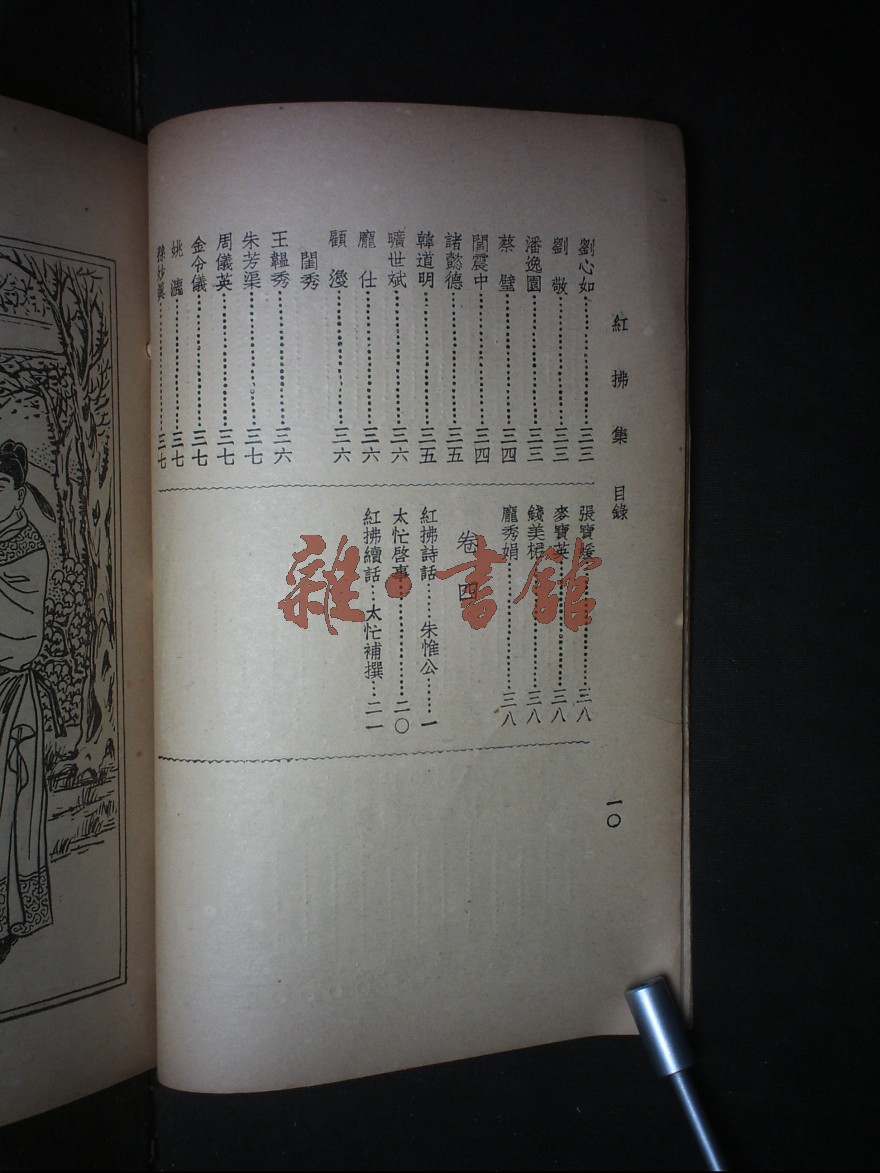 紅拂集 目錄
劉心如……三三
劉敬……三三
潘逸園……三三
蔡璧……三四
閻震中……三四
諸懿德……三五
韓道明……三五
曠世斌……三六
龐仕……三六
顧……三六
閨秀
王韞秀……三六
朱芳渠……三七
周儀英……三七
金令儀……三七
姚……三七
孫妙……三七
張寶……三八
麥寶英……三八
錢美……三八
龐秀娟……三八
卷四
紅拂詩話……朱惟公……一
太忙啓事……二〇
紅拂續話……太忙補撰……二一
一〇
雜·書館